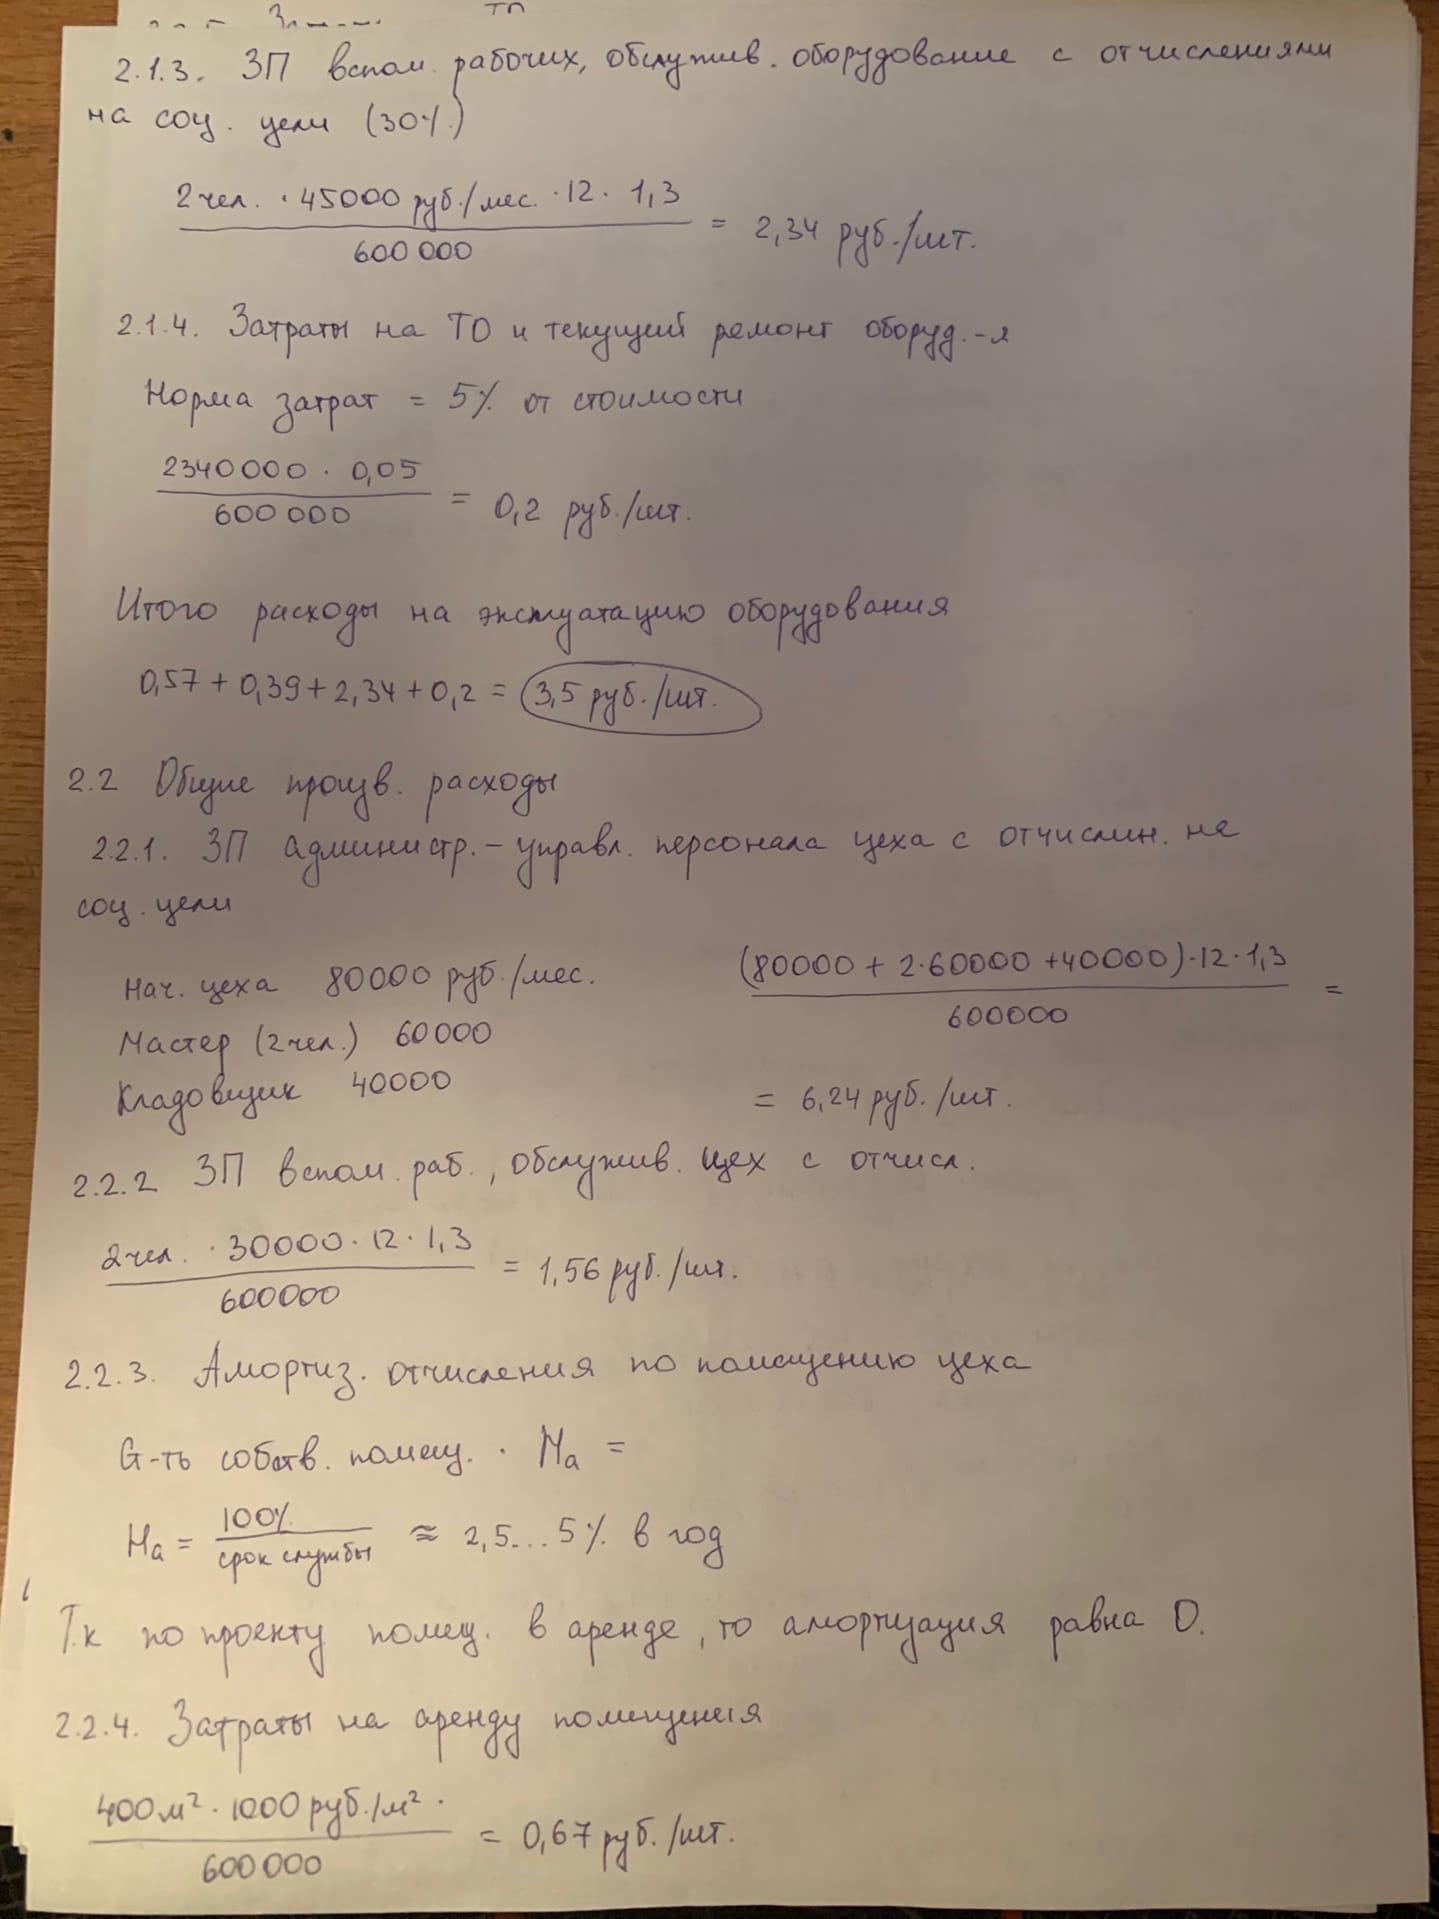 2.1.3. ЗП вспом. рабочих, обслужив. оборудование с отчислениями
на соц. цели (30%)
2 чел. · 45000 руб./мес. · 12 · 1,3
600 000
= 2,34 руб./шт.
2.1.4. Затраты на ТО и текущий ремонт оборуд.-я
Норма затрат = 5% от стоимости
2340000 · 0,05
600 000
= 0,2 руб./шт.
Итого расходы на эксплуатацию оборудования
0,57 + 0,39 + 2,34 + 0,2 = 3,5 руб./шт.
2.2 Общие произв. расходы
2.2.1. ЗП администр.- управл. персонала цеха с отчислин. на
соц. цели
Нач. цеха 80000 руб./мес.
Мастер (2чел.) 60000
Кладовщик 40000
(80000 + 2·60000 +40000)·12·1,3
600000
=
= 6,24 руб./шт.
2.2.2 ЗП вспом. раб., обслужив. цех с отчисл.
2чел. · 30000 · 12 · 1,3
600000
= 1,56 руб./шт.
2.2.3. Амортиз. отчисления по помещению цеха
Ст-ть собств. помещ. · На =
На = 100% / срок службы ≈ 2,5...5% в год
Т.к по проекту помещ. в аренде, то амортизация равна 0.
2.2.4. Затраты на аренду помещения
400м² · 1000 руб./м² ·
600 000
= 0,67 руб./шт.